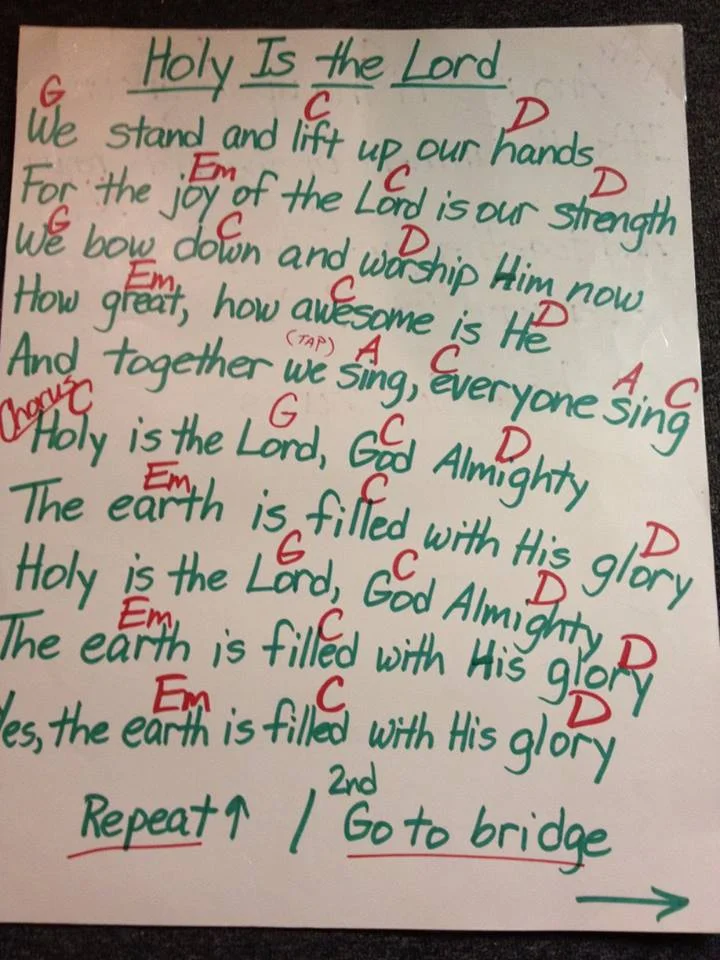 Holy Is the Lord
G C D
We stand and lift up our hands
Em C D
For the joy of the Lord is our strength
G C D
We bow down and worship Him now
Em C D
How great, how awesome is He
(TAP) A C A C
And together we sing, everyone sing
Chorus C G C D
Holy is the Lord, God Almighty
Em C D
The earth is filled with His glory
G C D
Holy is the Lord, God Almighty
Em C D
The earth is filled with His glory
Em C D
Yes, the earth is filled with His glory
2nd
Repeat ↑ / Go to bridge
→